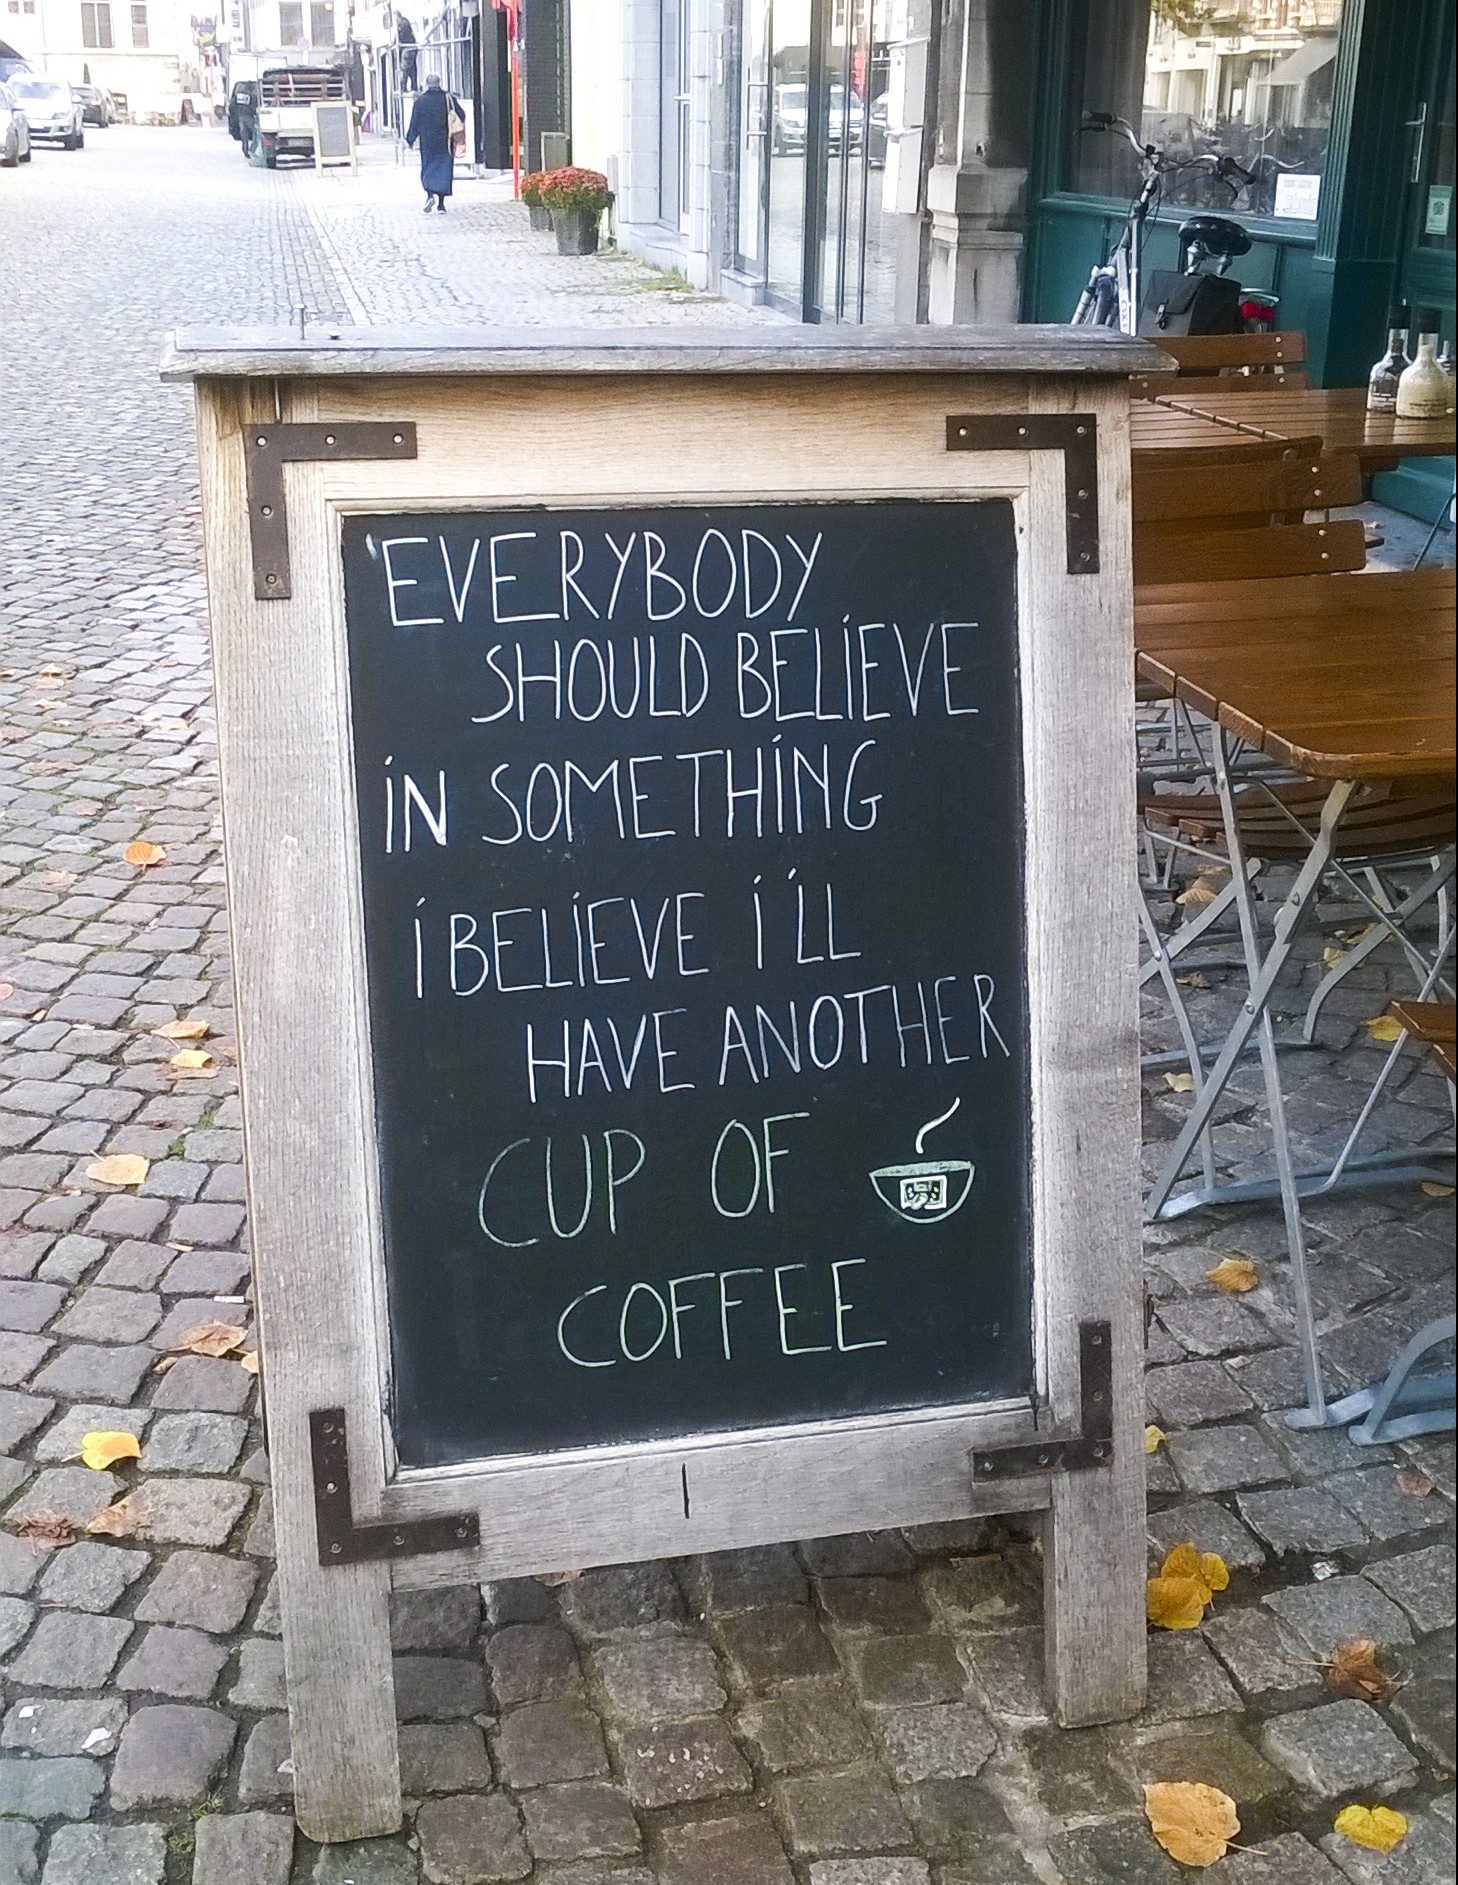 EVERYBODY
SHOULD BELIEVE
iN SOMETHiNG
i BELiEVE i'LL
HAVE ANOTHER
CUP OF
COFFEE